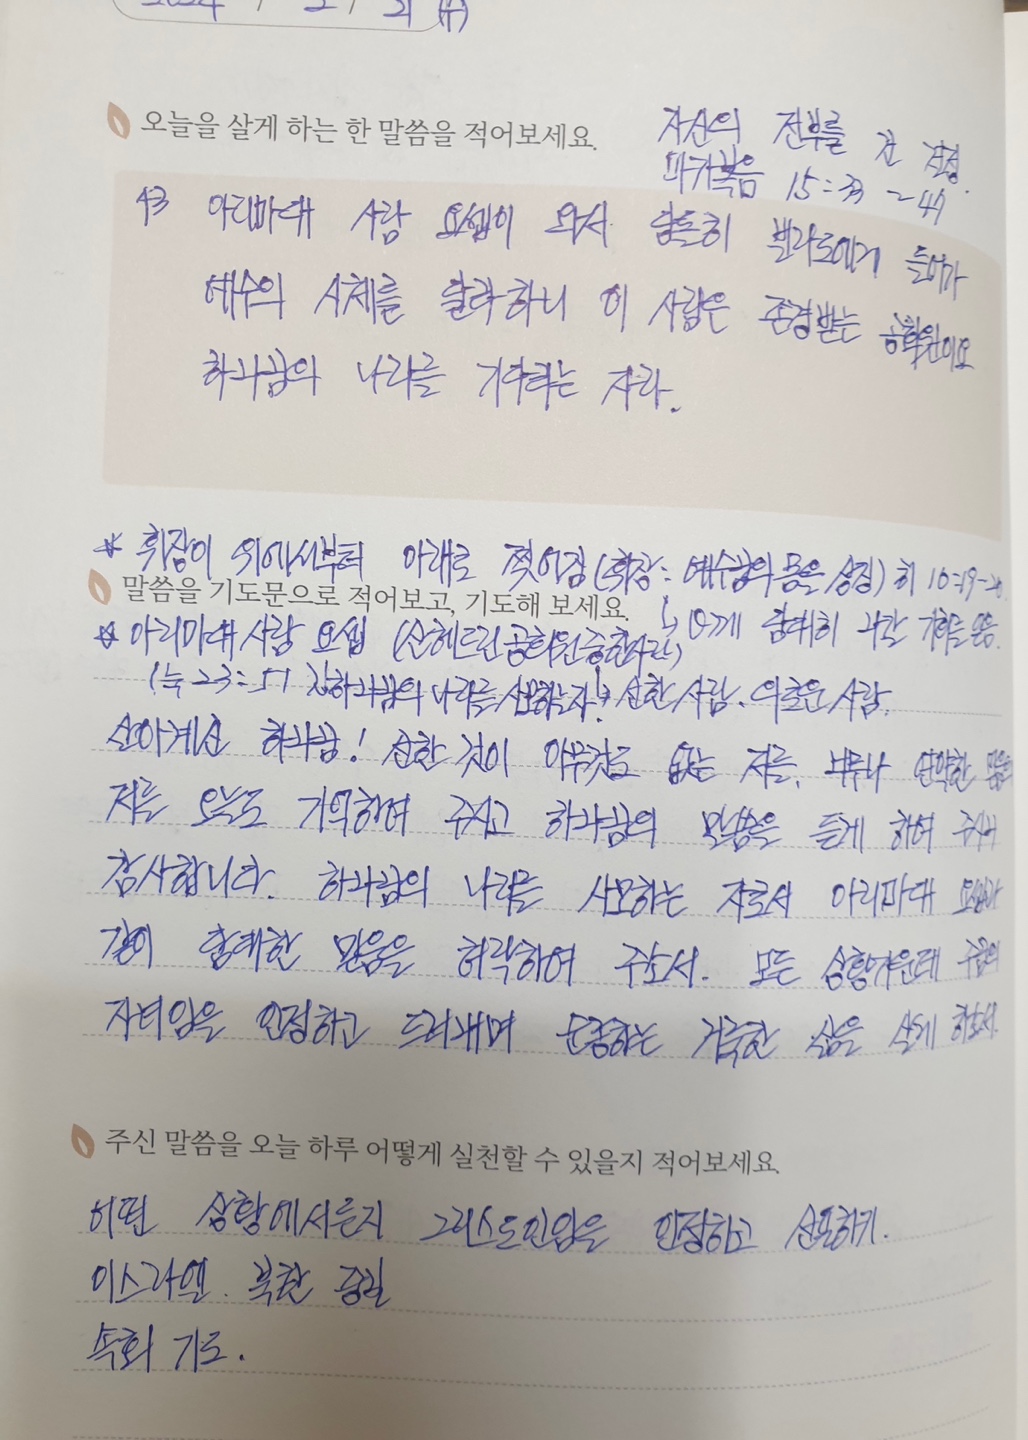 2024 / 2 / 21 (수)
오늘을 살게 하는 한 말씀을 적어보세요.
자신의 전부를 건 결정.
마가복음 15:33 ~ 47
43 아리마대 사람 요셉이 와서 당돌히 빌라도에게 들어가
예수의 시체를 달라 하니 이 사람은 존경받는 공회원이요
하나님의 나라를 기다리는 자라.
* 휘장이 위에서부터 아래로 찢어짐 (휘장: 예수님의 몸을 상징) 히 10:19-20
말씀을 기도문으로 적어보고, 기도해 보세요.
↳ 담대히 나갈
* 아리마대 사람 요셉 (산헤드린 공회원
(눅 23:51 하나님의 나라를 선한 사람. 의로운 사람.
살아계신 하나님! 선한 것이 아무것도 없는 저를, 너무나 연약한
저를 오늘도 기억하여 주시고 하나님의 말씀을 듣게 하여 주셔서
감사합니다. 하나님의 나라를 사모하는 자로서 아리마대 요셉과
같이 담대한 믿음을 허락하여 주소서. 모든 상황가운데 주님의
자녀임을 인정하고 드러내며 순종하는 거룩한 삶을 살게 하소서.
주신 말씀을 오늘 하루 어떻게 실천할 수 있을지 적어보세요.
어떤 상황에서든지 그리스도인임을 인정하고 선포하기.
이스라엘. 북한 통일
속회 기도.